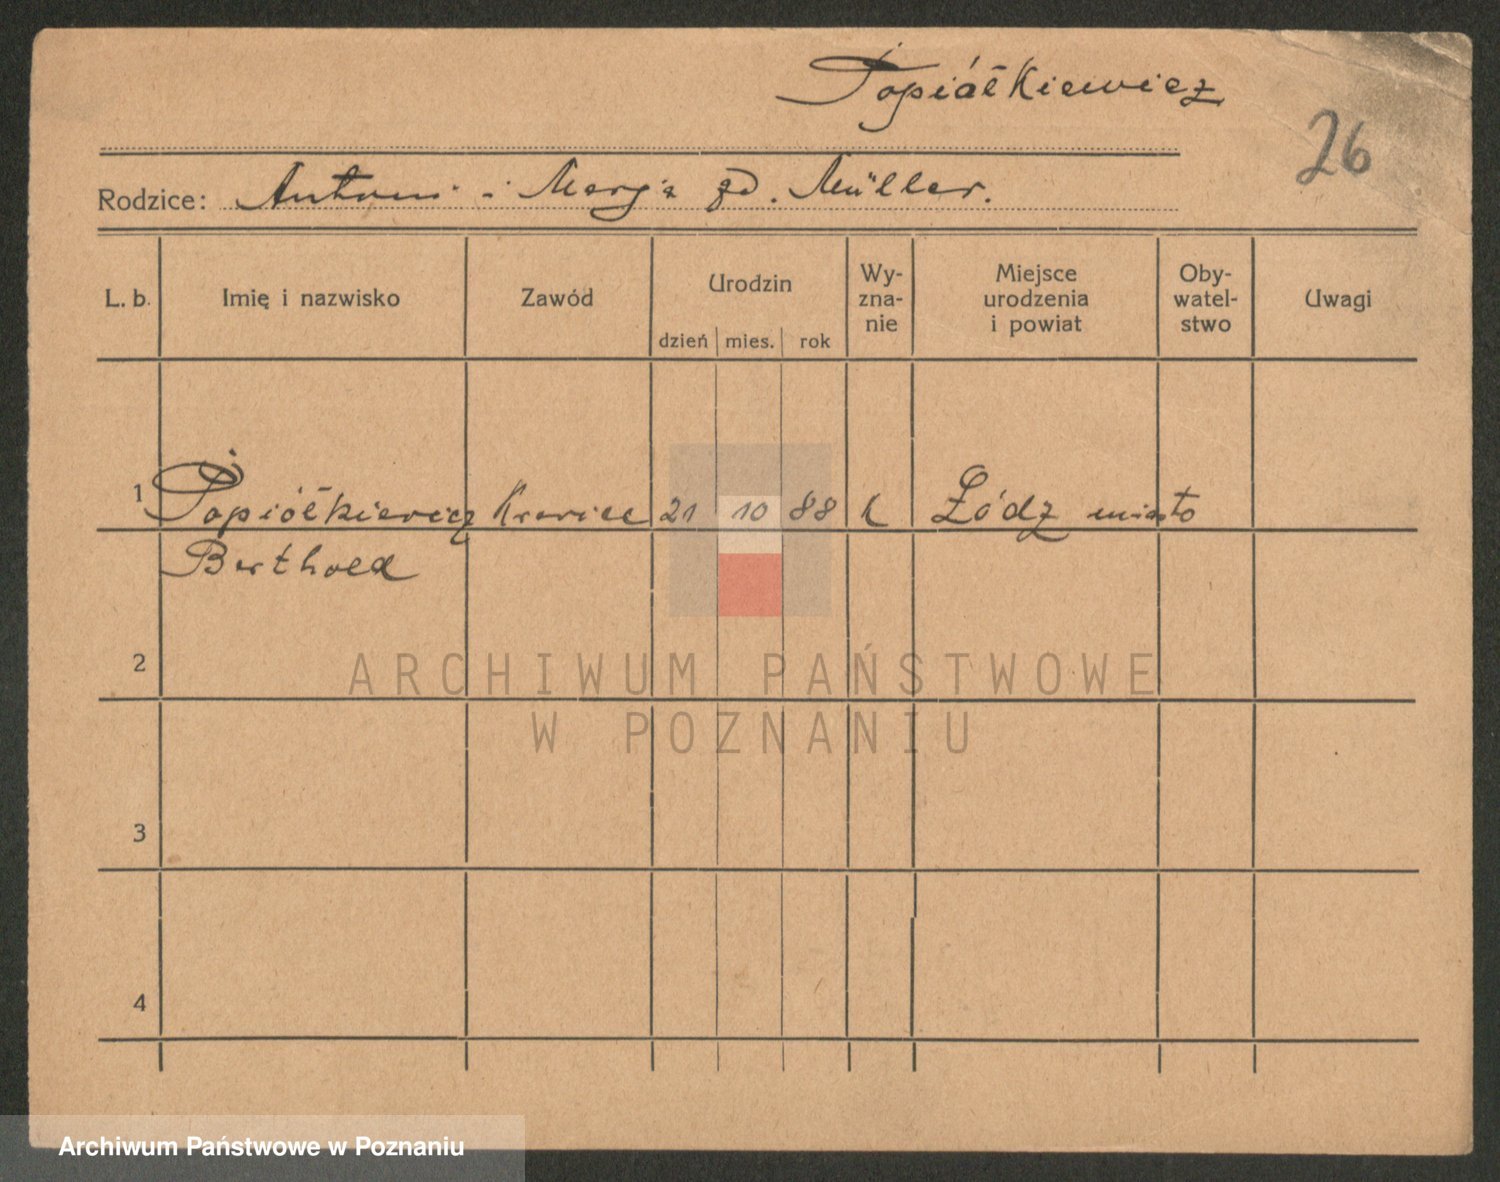 Popiółkiewicz
26
Rodzice: Antoni i Marja zd. Müller.
L. b. Imię i nazwisko Zawód Urodzin dzień mies. rok Wy-zna-nie Miejsce urodzenia i powiat Oby-watel-stwo Uwagi
1 Popiółkiewicz Krawiec 21 10 88 k Łódz miasto
Berthold
2
ARCHIWUM PAŃSTWOWE
W POZNANIU
3
4
Archiwum Państwowe w Poznaniu